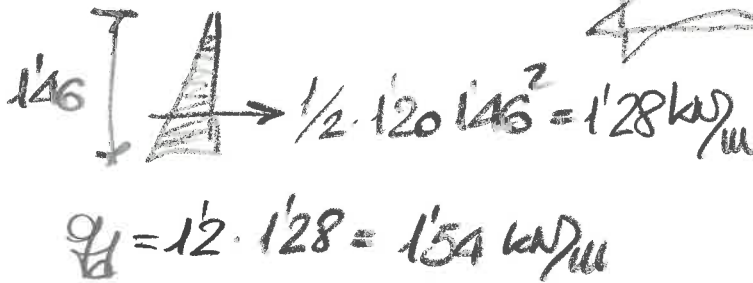 1'46
1/2 · 1'20 1'46² = 1'28 kN/m
qd = 1'2 · 1'28 = 1'54 kN/m